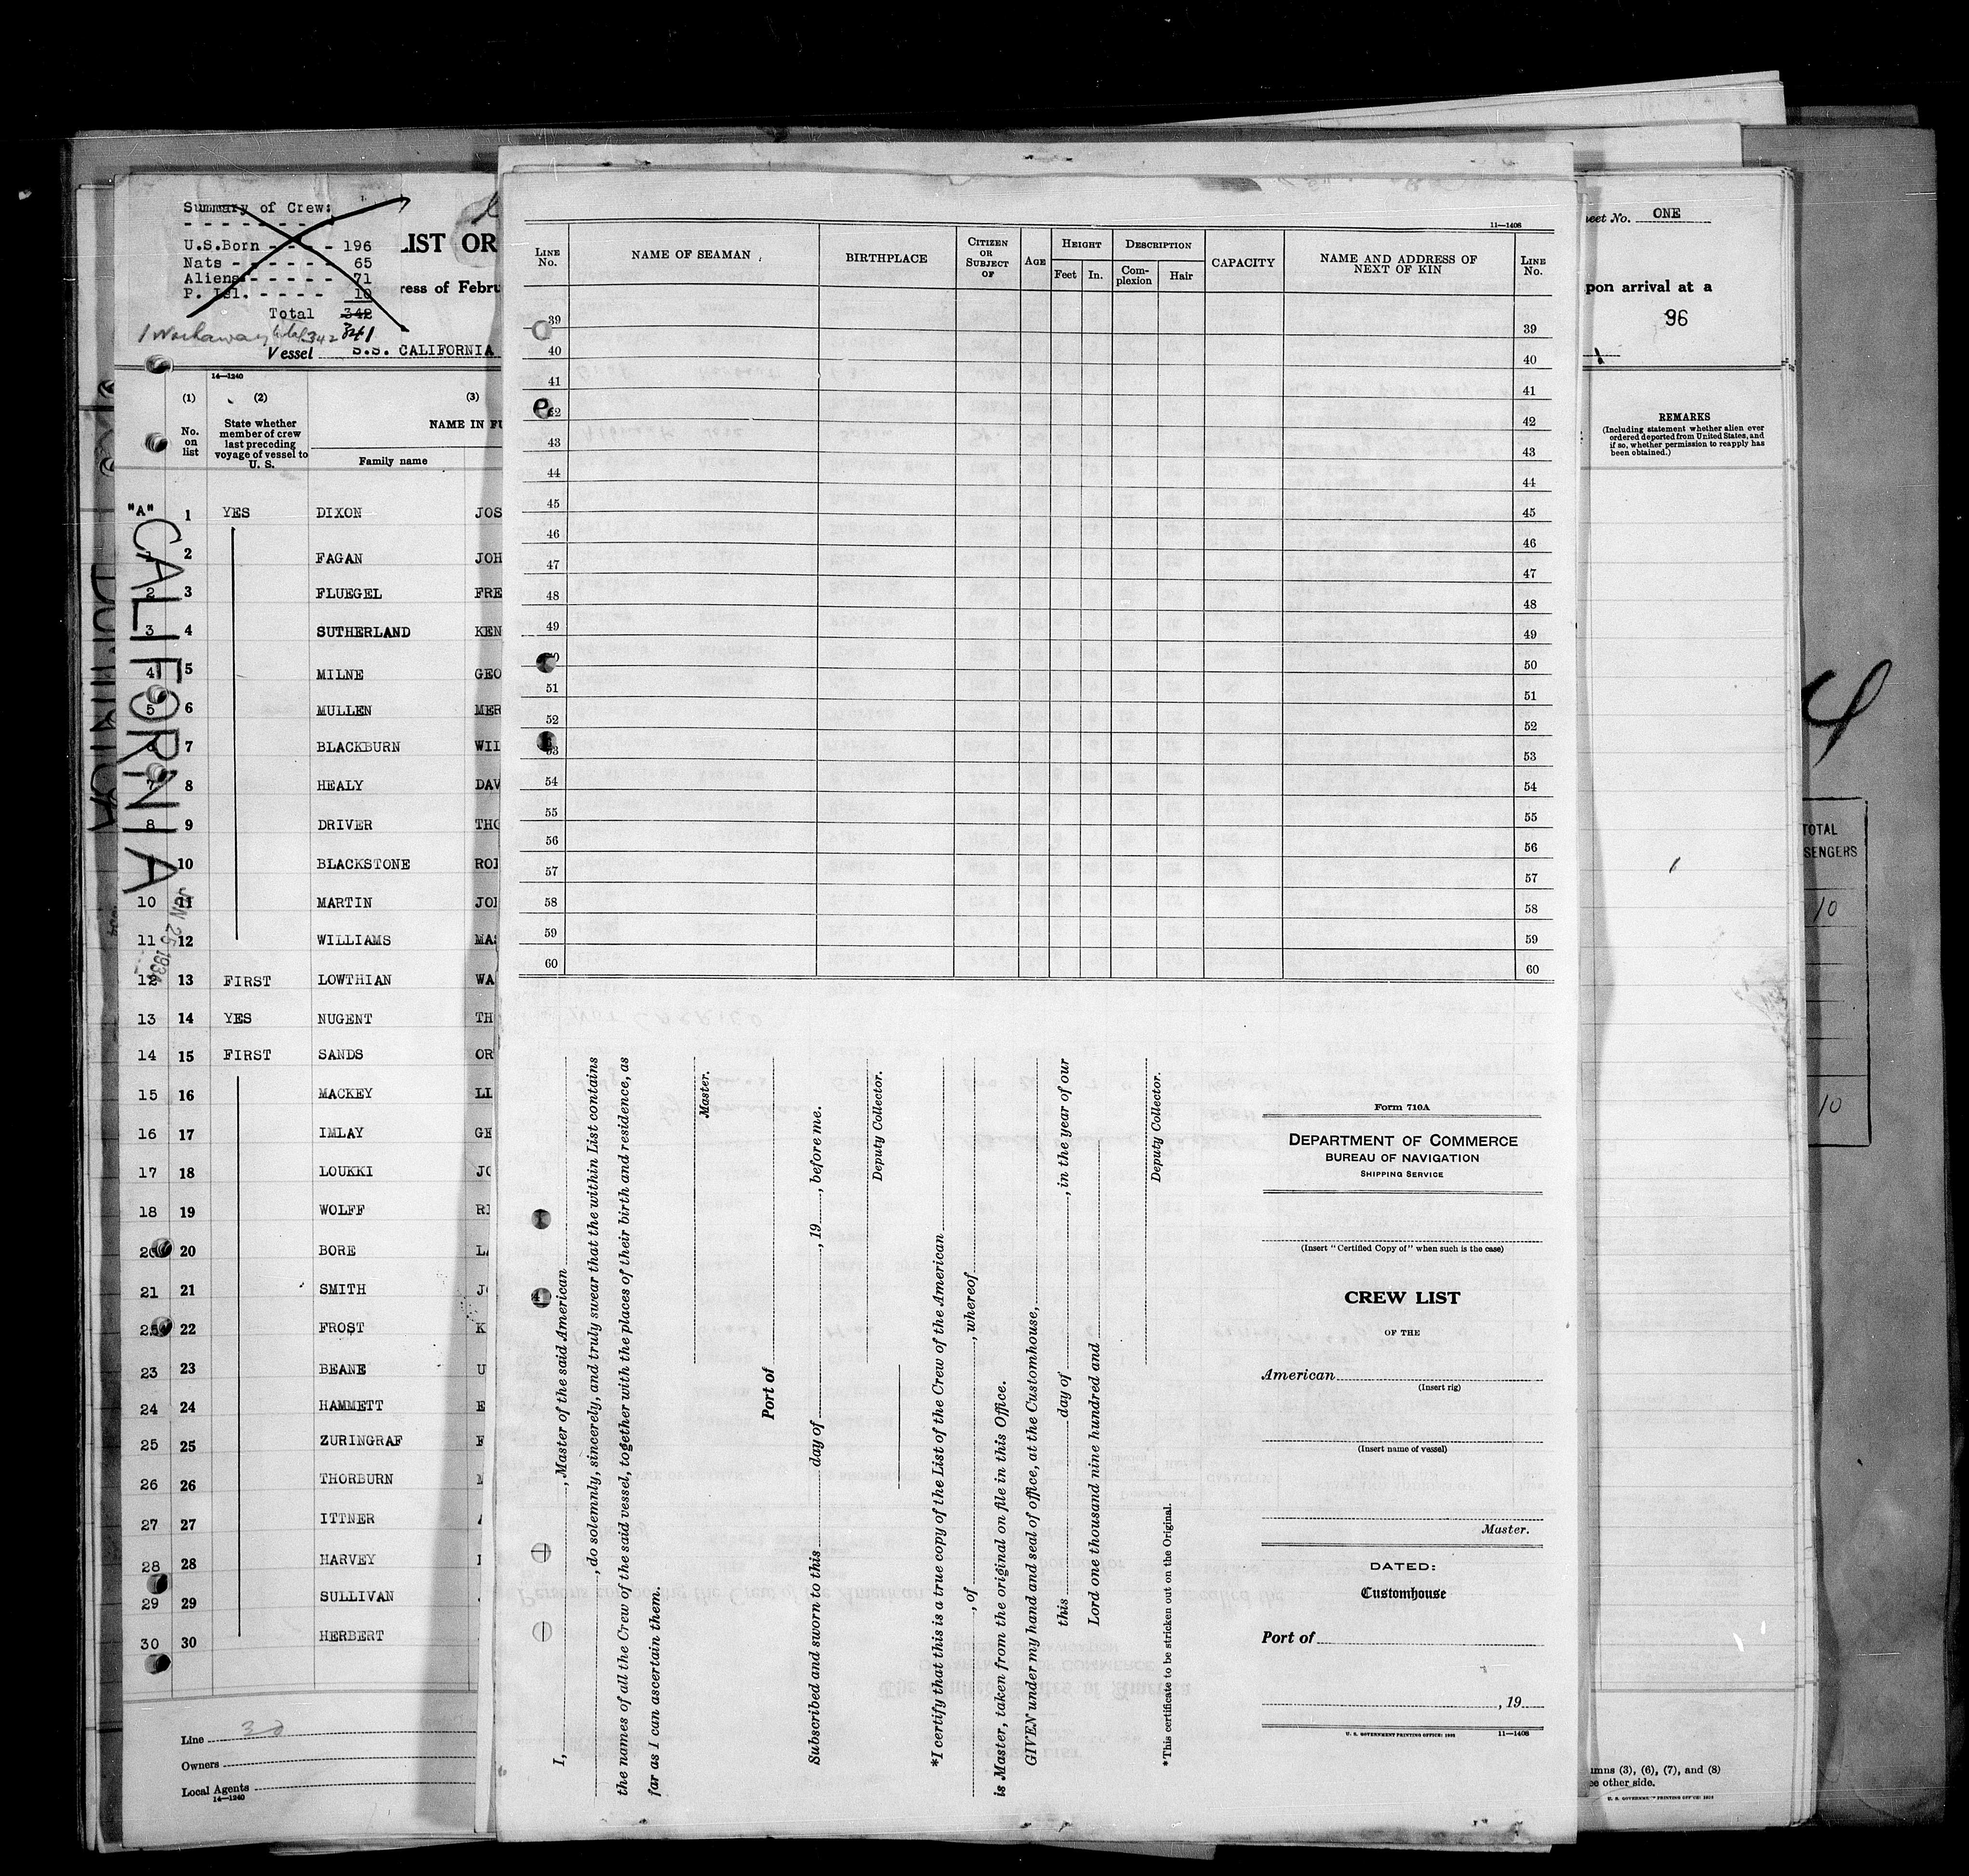 Summary of Crew:
- - - - - - - -
U.S.Born - - - - 196
Nats - - - - - - 65
Aliens - - - - - 71
P. Isl. - - - - 10
Total 342 341
1 Workaway total 342
LIST OR
ress of Febru
Vessel S.S. CALIFORNIA
14—1240
(1) (2) (3)
No. on list
State whether member of crew last preceding voyage of vessel to U. S.
NAME IN FU
Family name
"A" 1 YES DIXON JOS
2 FAGAN JOH
2 3 FLUEGEL FRE
3 4 SUTHERLAND KEN
4 5 MILNE GEO
5 6 MULLEN MER
7 BLACKBURN WIL
7 8 HEALY DAV
8 9 DRIVER THO
10 BLACKSTONE ROB
10 11 MARTIN JOH
11 12 WILLIAMS MAS
12 13 FIRST LOWTHIAN WA
13 14 YES NUGENT TH
14 15 FIRST SANDS OR
15 16 MACKEY LL
16 17 IMLAY GE
17 18 LOUKKI JO
18 19 WOLFF RI
20 20 BORE LA
21 21 SMITH JO
22 FROST K
23 23 BEANE U
24 24 HAMMETT E
25 25 ZURINGRAF F
26 26 THORBURN M
27 27 ITTNER
28 28 HARVEY
29 29 SULLIVAN
30 30 HERBERT
CALIFORNIA
JUN 25 1934
DOMINICA
Line 30
Owners
Local Agents
14—1240
11—1408
LINE No.
NAME OF SEAMAN
BIRTHPLACE
CITIZEN OR SUBJECT OF
AGE
HEIGHT
Feet In.
DESCRIPTION
Complexion Hair
CAPACITY
NAME AND ADDRESS OF NEXT OF KIN
LINE No.
39 39
40 40
41 41
42 42
43 43
44 44
45 45
46 46
47 47
48 48
49 49
50 50
51 51
52 52
53 53
54 54
55 55
56 56
57 57
58 58
59 59
60 60
I, , Master of the said American
, do solemnly, sincerely, and truly swear that the within List contains
the names of all the Crew of the said vessel, together with the places of their birth and residence, as
far as I can ascertain them.
Master.
Port of
Subscribed and sworn to this day of , 19 , before me.
Deputy Collector.
*I certify that this is a true copy of the List of the Crew of the American
, of , whereof
is Master, taken from the original on file in this Office.
GIVEN under my hand and seal of office, at the Customhouse,
this day of , in the year of our
Lord one thousand nine hundred and
Deputy Collector.
*This certificate to be stricken out on the Original.
Form 710A
DEPARTMENT OF COMMERCE
BUREAU OF NAVIGATION
SHIPPING SERVICE
(Insert "Certified Copy of" when such is the case)
CREW LIST
OF THE
American
(Insert rig)
(Insert name of vessel)
Master.
DATED:
Customhouse
Port of
, 19
U. S. GOVERNMENT PRINTING OFFICE: 11—1408
eet No. ONE
pon arrival at a
96
REMARKS
(Including statement whether alien ever ordered deported from United States, and if so, whether permission to reapply has been obtained.)
4
TOTAL
SENGERS
10
10
umns (3), (6), (7), and (8)
ee other side.
U. S. GOVERNMENT PRINTING OFFICE